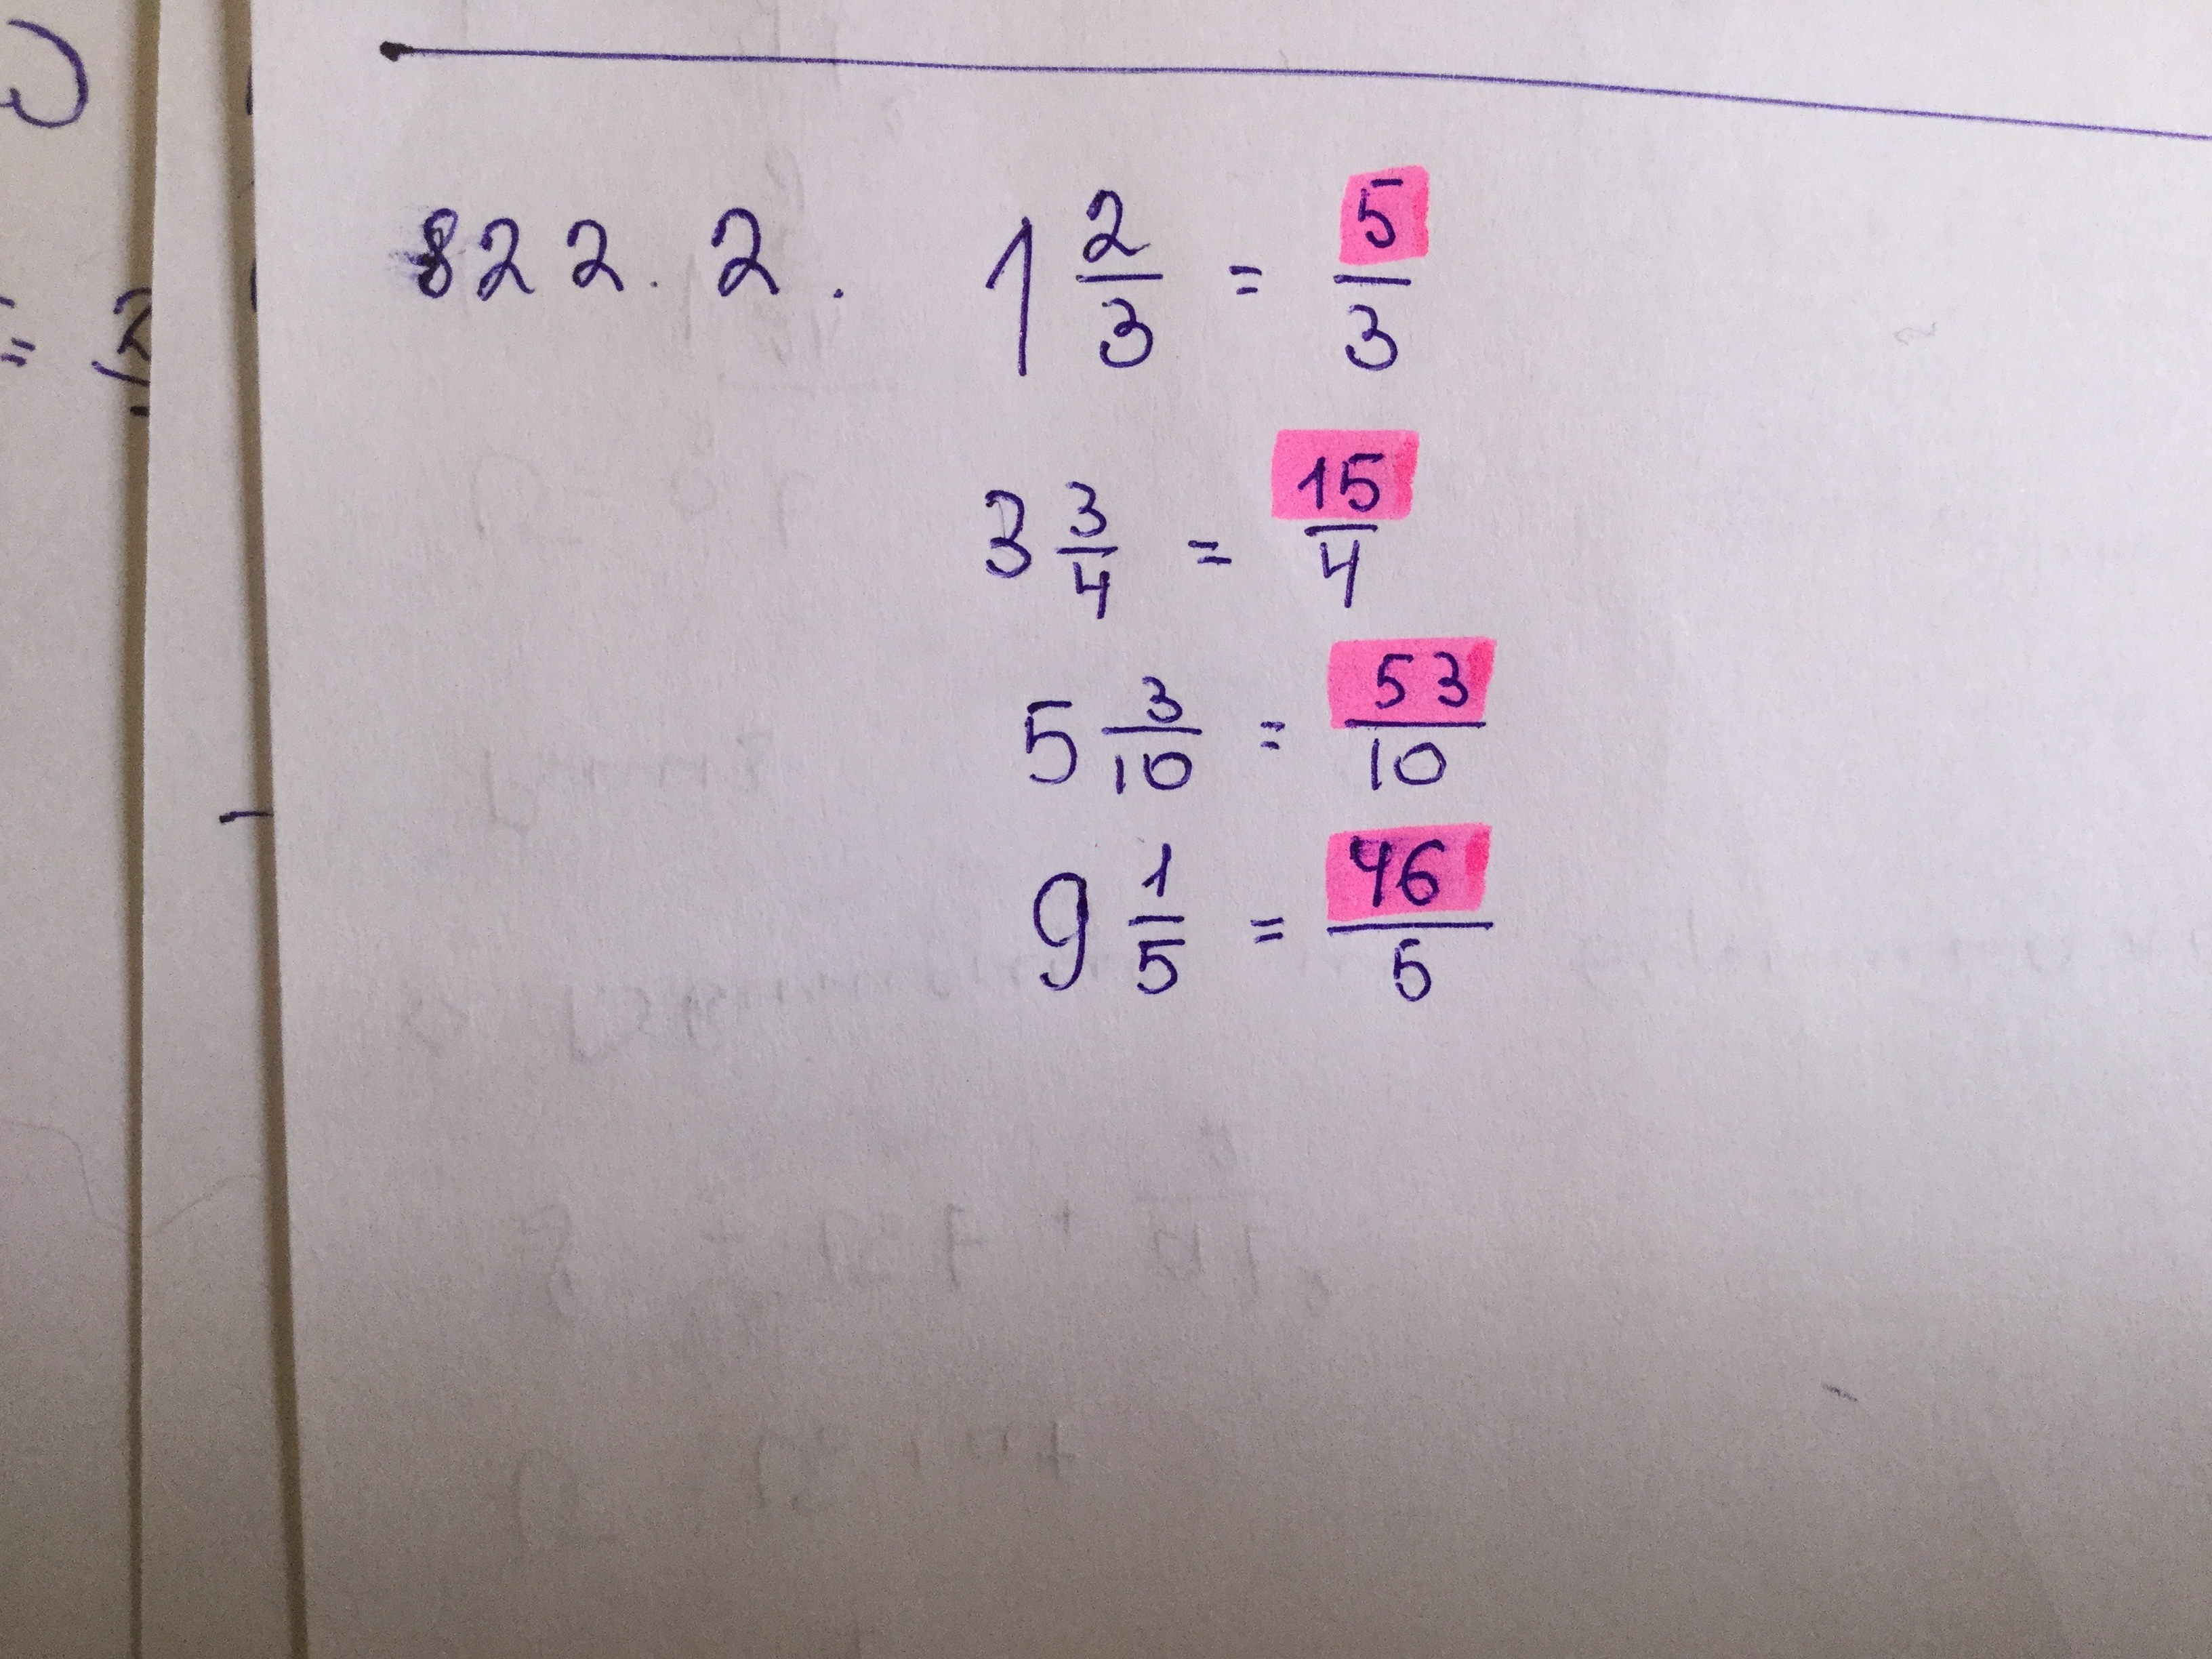 822. 2. 1 2/3 = 5/3
3 3/4 = 15/4
5 3/10 = 53/10
9 1/5 = 46/5